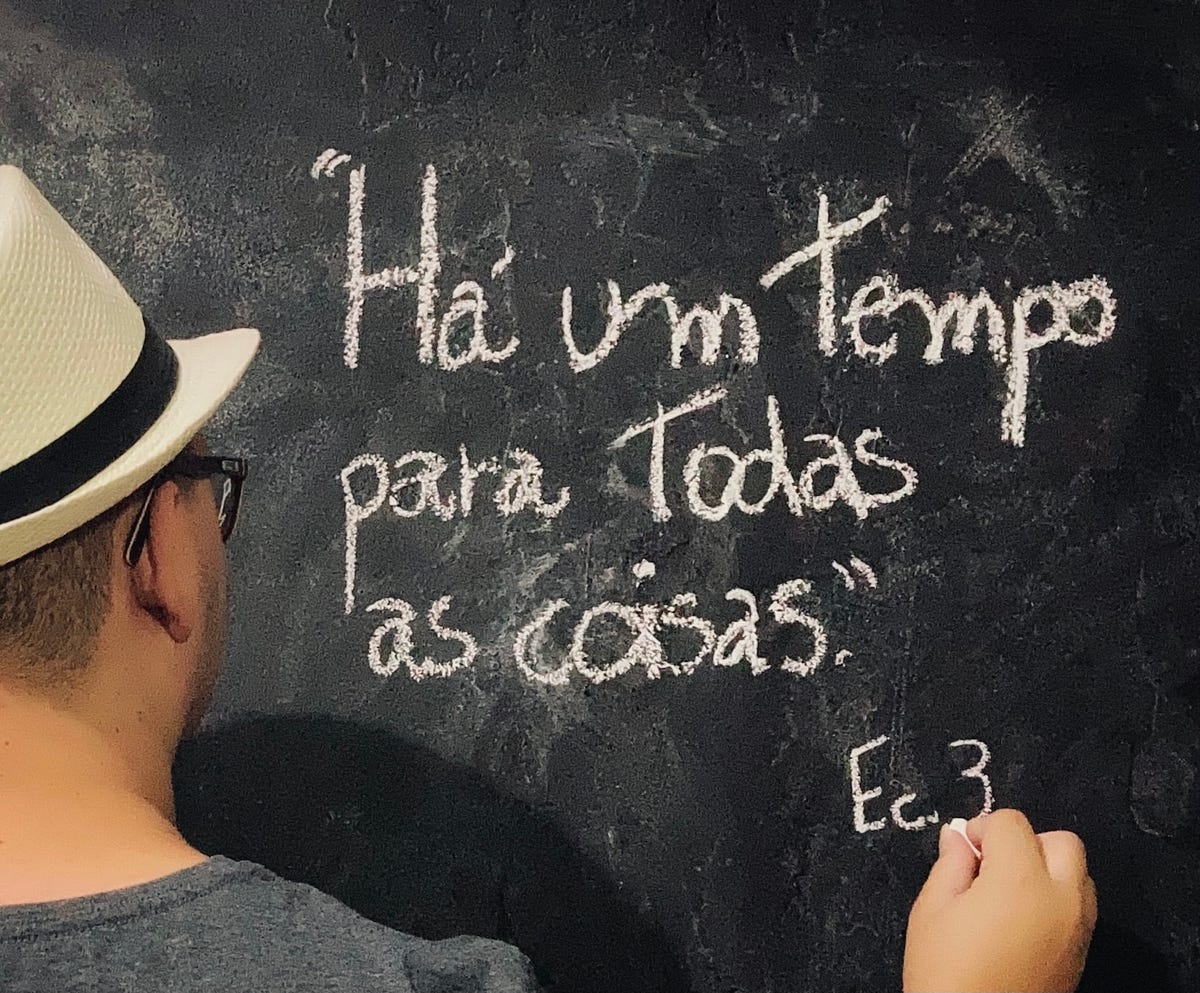 "Há um tempo
para todas
as coisas."
Ec. 3